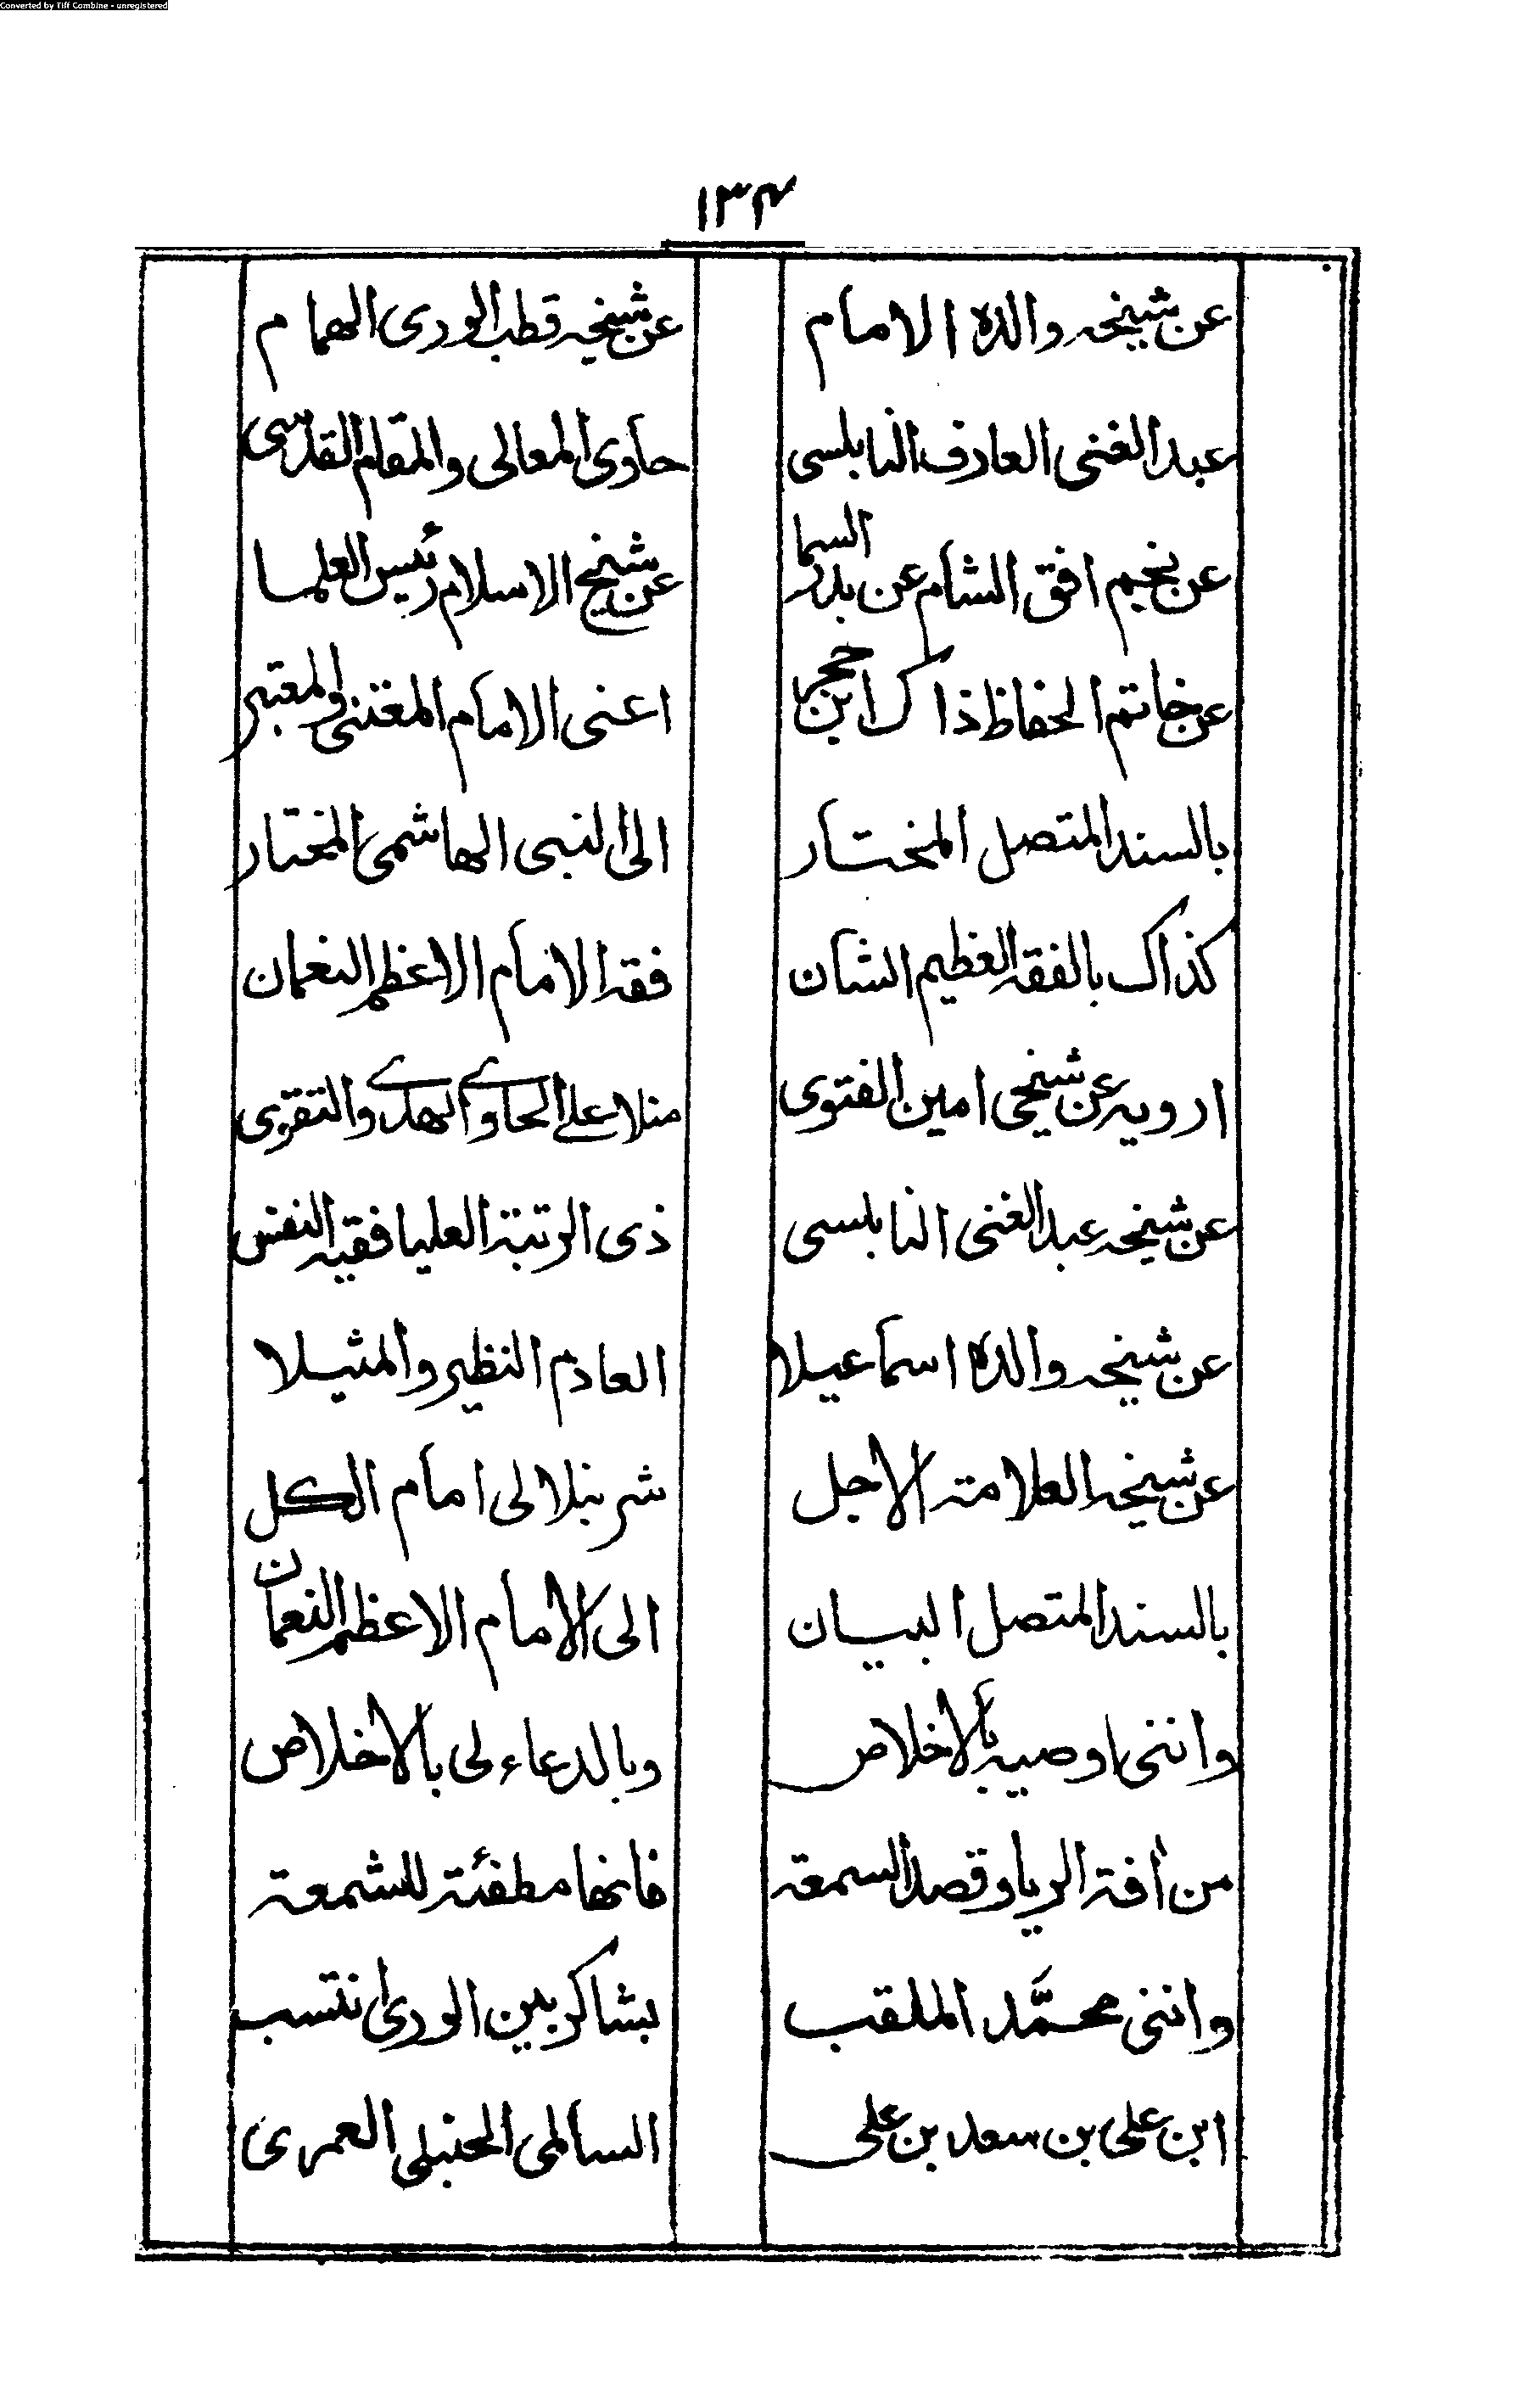 Converted by Tiff Combine - unregistered
١٣٤
عن شيخه والده الامام عن شيخه قطب الورى الهمام
عبد الغنى العارف النابلسى حاوى المعالى والمقام القدسى
عن نجم افق الشام عن بدر السما عن شيخ الاسلام رئيس العلما
عن خاتم الحفاظ ذاك ابن حجر اعنى الامام المقتنى والمعتبر
بالسند المتصل المختار الى النبى الهاشمى المختار
كذاك بالفقه العظيم الشان فقه الامام الاعظم النعمان
ارويه عن شيخى امين الفتوى منلا على الحاوى الهدى والتقوى
عن شيخه عبد الغنى النابلسى ذى الرتبة العليا فقيه النفس
عن شيخه والده اسماعيلا العادم النظير والمثيلا
عن شيخه العلامة الاجل شرنبلالى امام الكل
بالسند المتصل البيان الى الامام الاعظم النعمان
واننى اوصيه بالاخلاص وبالدعاء لى بالاخلاص
من أفة الريا وقصد السمعة فانها مطفئة للشمعة
واننى محمَّد الملقب بشاكر بين الورى انتسب
ابن على بن سعد بن على السالمى الحنبلى العمرى